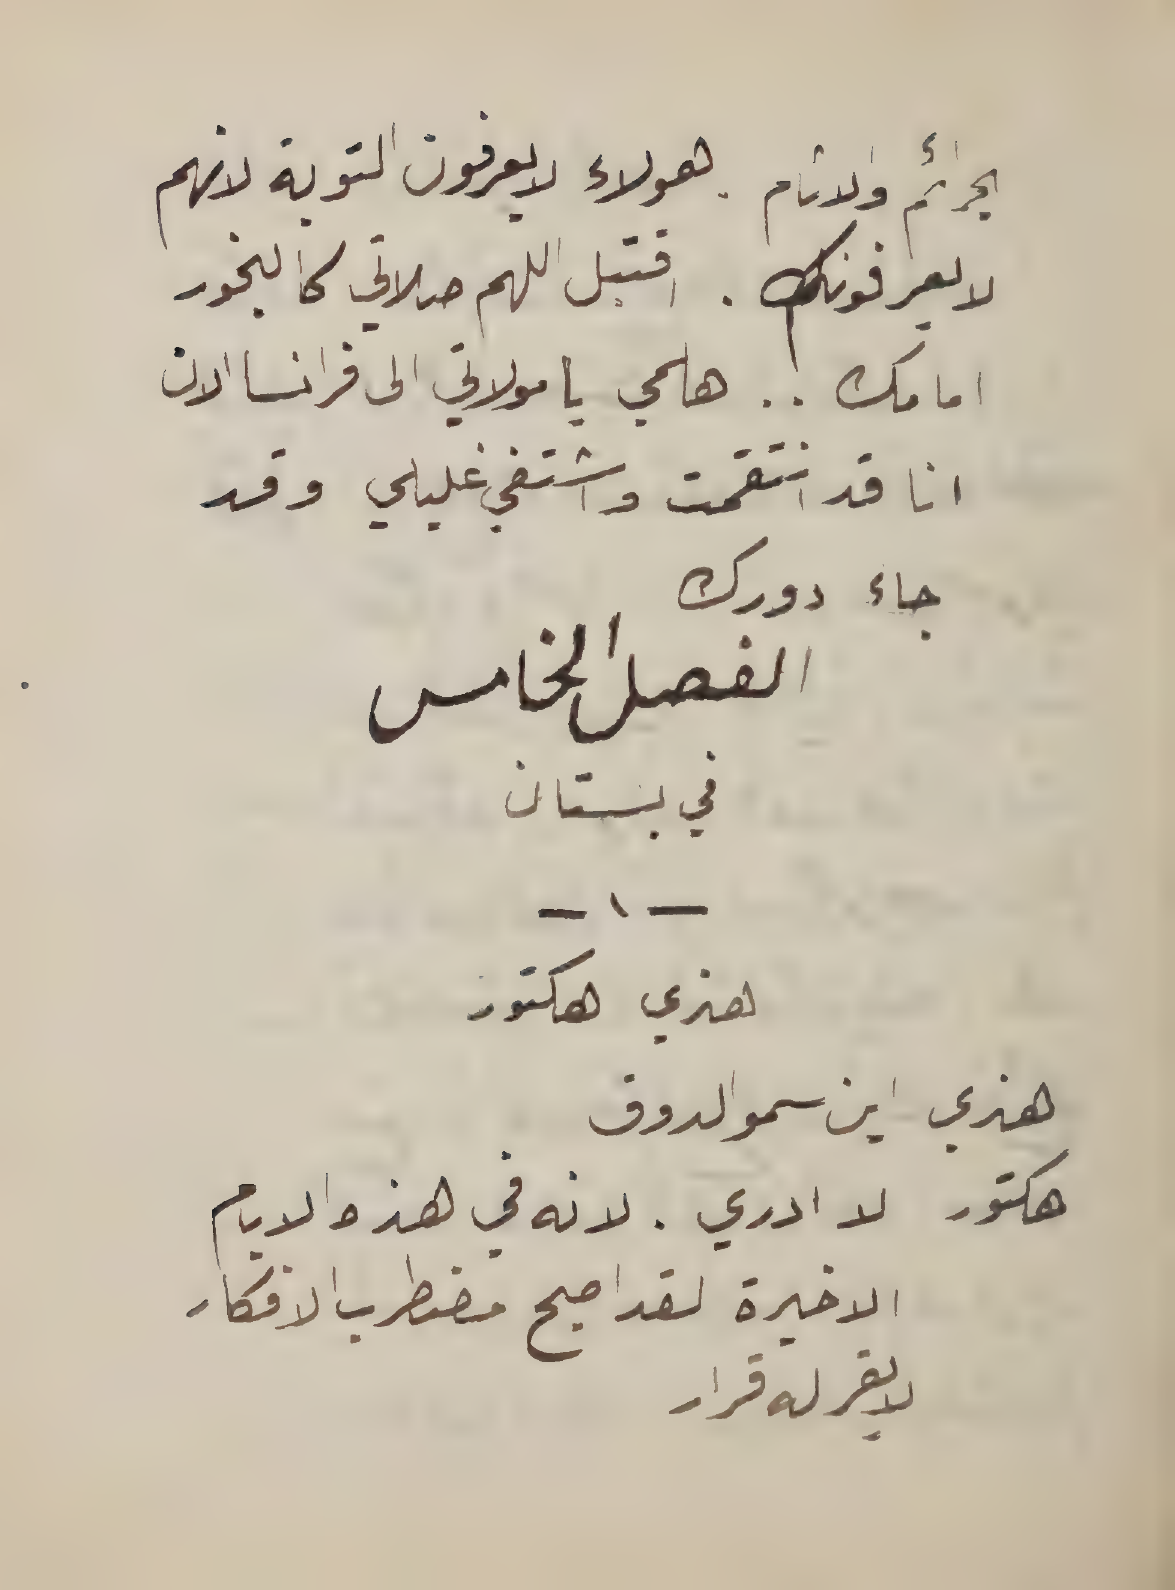 بجرائم والاثام . هولاء لا يعرفون التوبة لانهم
لا يعرفونك . اقتبل اللهم صلاتي كالبخور
امامك .. هلمي يا مولاتي الى فرانسا الان
انا قد انتقمت واشتفي غليلي وقد
جاء دورك
الفصل الخامس
في بستان
— ١ —
هنري هكتور
هنري اين سمو الدوق
هكتور لا ادري . لانه في هذه الايام
الاخيرة لقد اصبح مضطرب الافكار
لا يقر له قرار